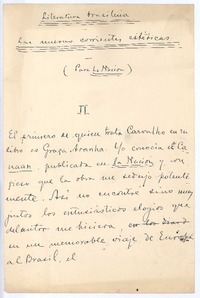 Literatura brasilena
Las nuevas corrientes estéticas.
(Para La Nacion)
II
El primero de quien trata Carvalho en su
libro es Graça Aranha. Yo conocia el Ca
naan, publicado en La Nacion y con
fieso que la obra me sedujo potente
mente. Así no encontré sino muy
justos los entusiásticos elogios que
del autor me hiciera,
en un memorable viaje de Europa
al Brasil, el